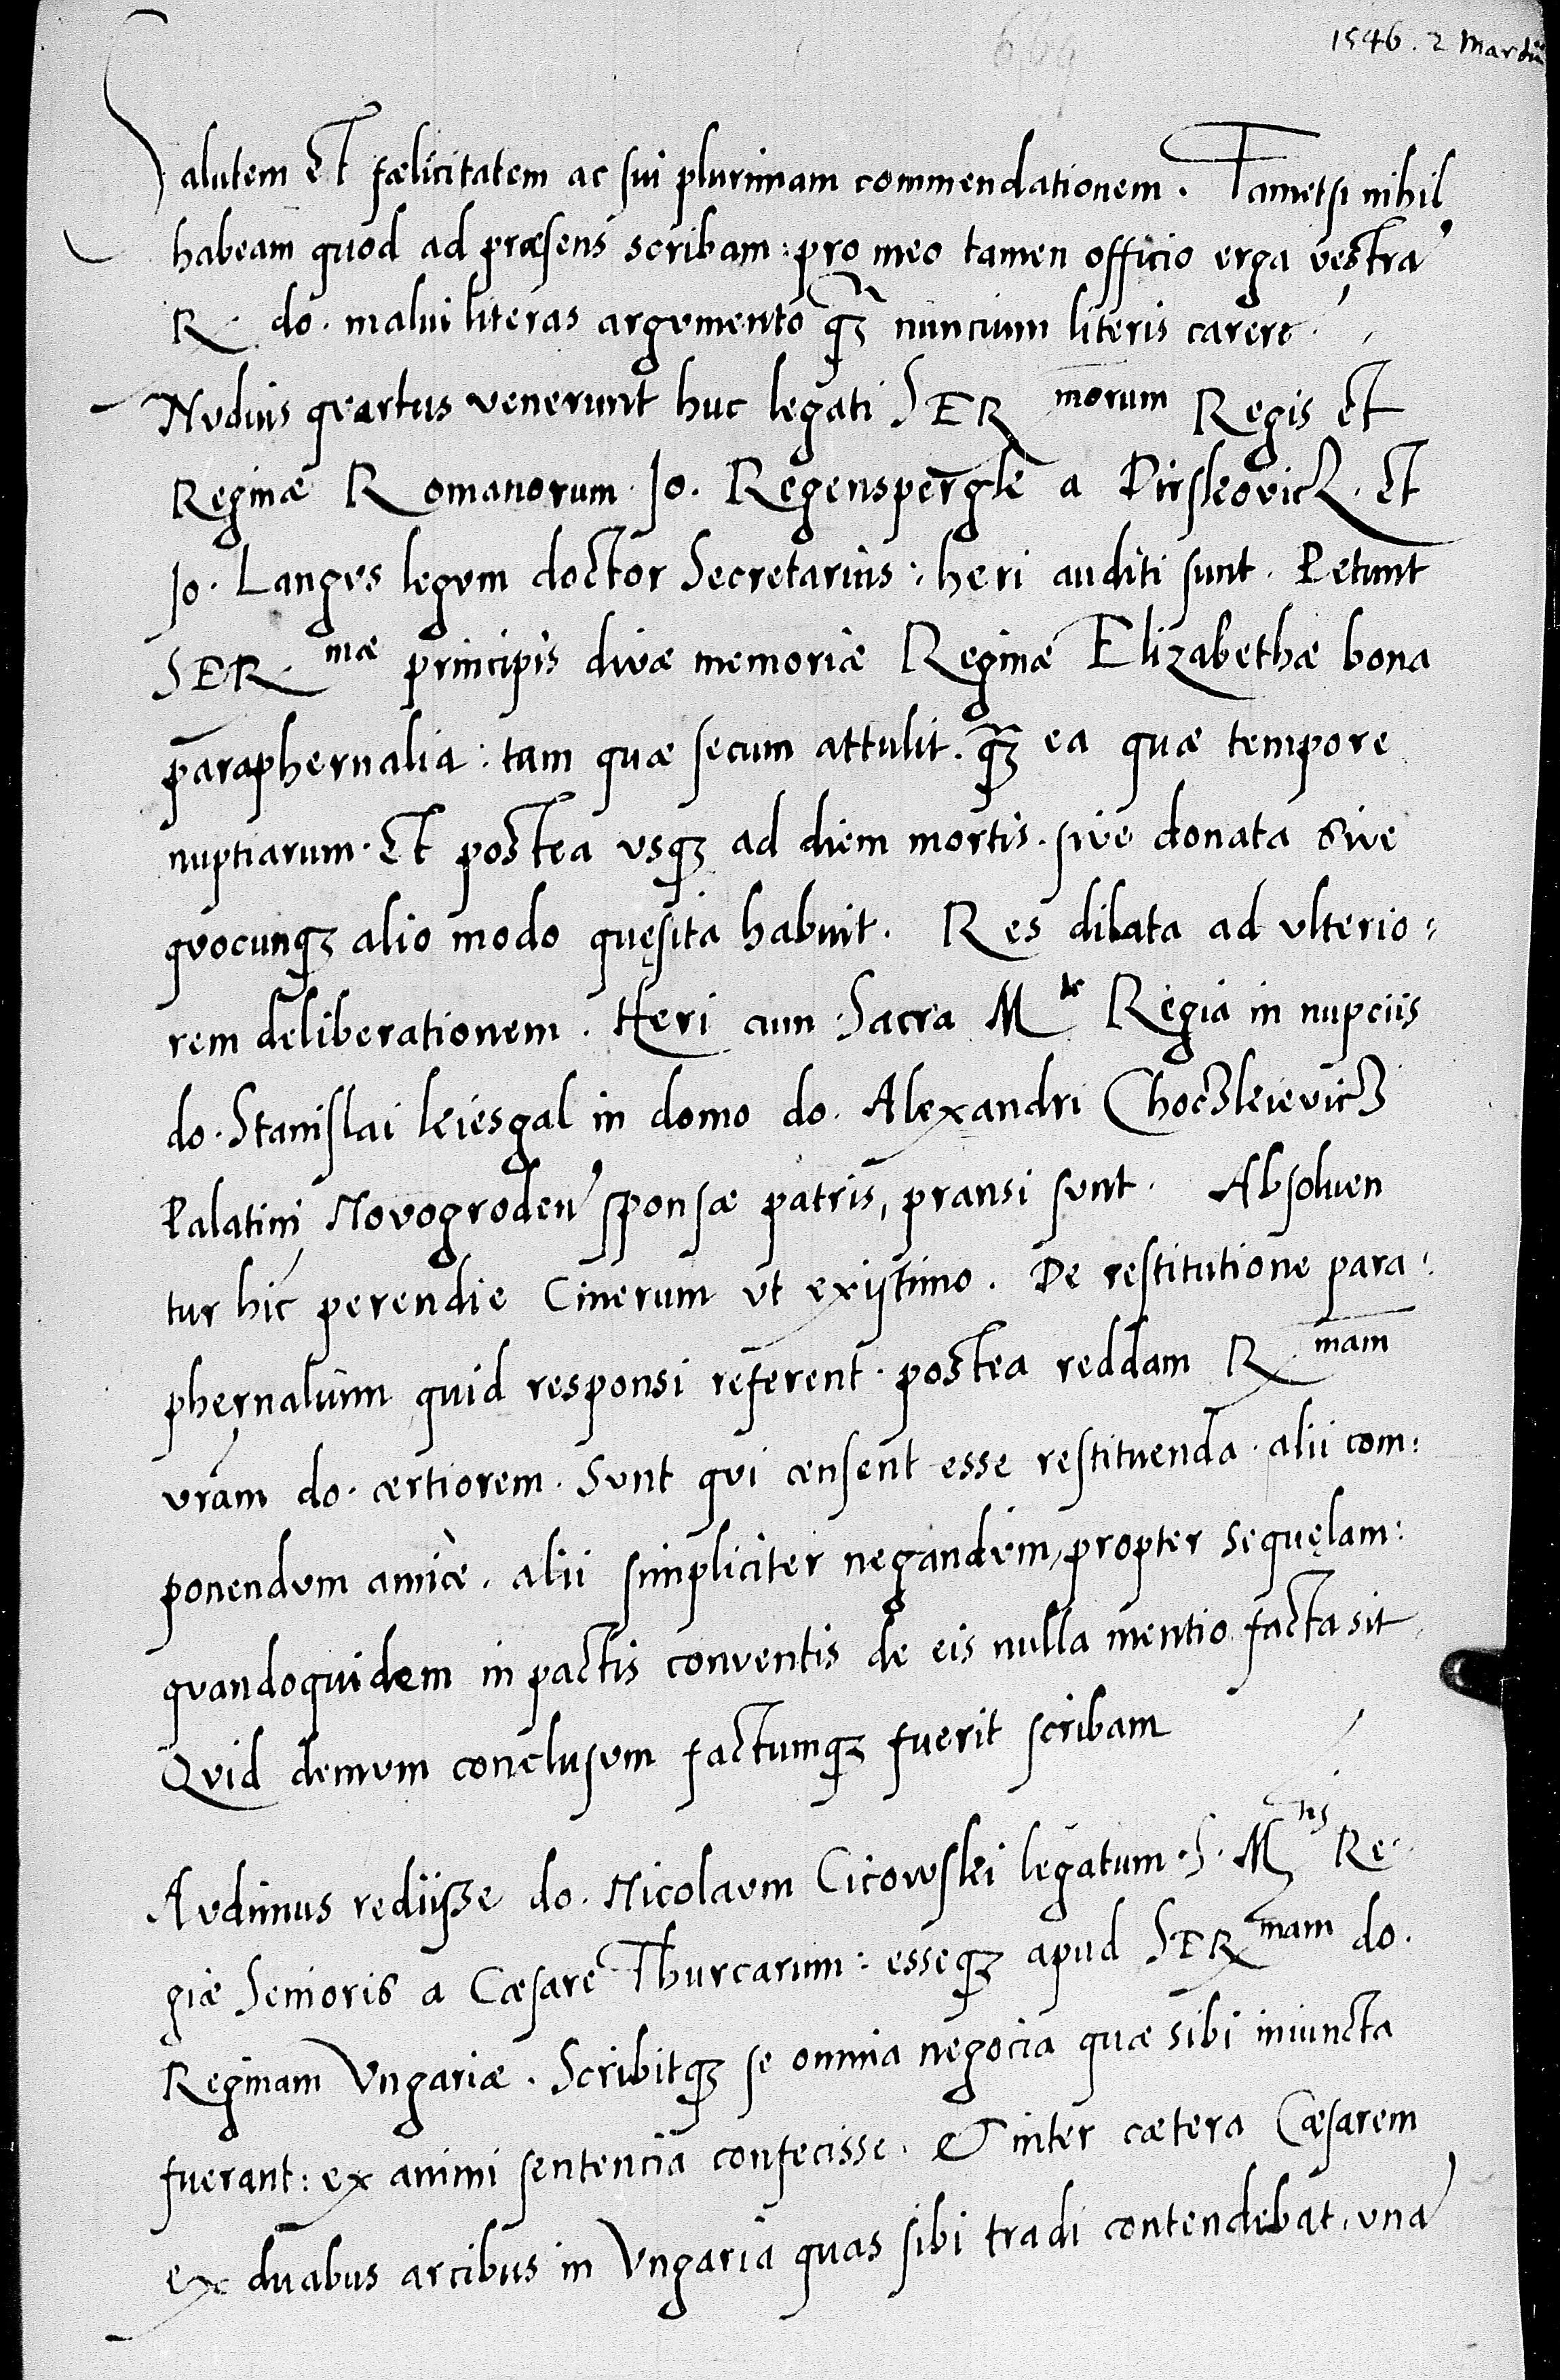 669
1546. 2 Martii
Salutem Et fælicitatem ac sui plurimam commendationem. Tametsi nihil
habeam quod ad præsens scribam: pro meo tamen officio erga vestra᷒
R. do. malui literas argumento qꝫ̃ nuncium literis carere.
Nudius quartus venerunt huc legati SER morum Regis Et
Reginæ Romanorum. Jo. Regenspergk a Dirskovicz. Et
Jo. Langus legum doctor Secretarius: heri auditi sunt. Petunt
SER. mæ principis divæ memoriæ Reginæ Elizabethæ bona
paraphernalia: tam quæ secum attulit. qꝫ̃ ea quæ tempore
nuptiarum. Et postea usqꝫ ad diem mortis. sive donata sive
quocunqꝫ alio modo quęsita habuit. Res dilata ad ulterio:
rem deliberationem. Heri cum Sacra M.te Regia in nupciis
do. Stanislai kiesgal in domo do. Alexandri Choczkievicz
Palatini Novogroden᷒ sponsæ patris, pransi sunt. Absolven
tur hic perendie Cinerum ut existimo. De restitutione para:
phernalium quid responsi referent. postea reddam R mam
vram do. certiorem. Sunt qui censent esse restituenda. alii com:
ponendum amice. alii simpliciter negandum, propter sequęlam:
quandoquidem in pactis conventis de eis nulla mentio facta sit
Quid demum conclusum factumqꝫ fuerit scribam
Audimus rediisse do. Nicolaum Cicowski legatum. S. M tis Re
giæ Senioris a Cæsare Thurcarum: esseqꝫ apud SER mam do.
Reginam Ungariæ. Scribitqꝫ se omnia negocia quæ sibi iniuncta
fuerant: ex animi sentencia confecisse. Et inter cætera Cæsarem
ex duabus arcibus in Ungaria quas sibi tradi contendebat, una᷒